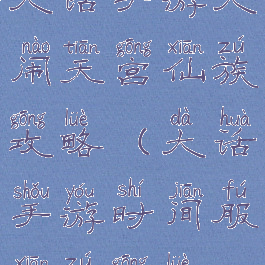 nào tiān gōng xiān zú
闹天宫仙族
gōng lüè dà huà
攻略(大话
shǒu yóu shí jiān fú
手游时间服
xiān zú gōng lüè